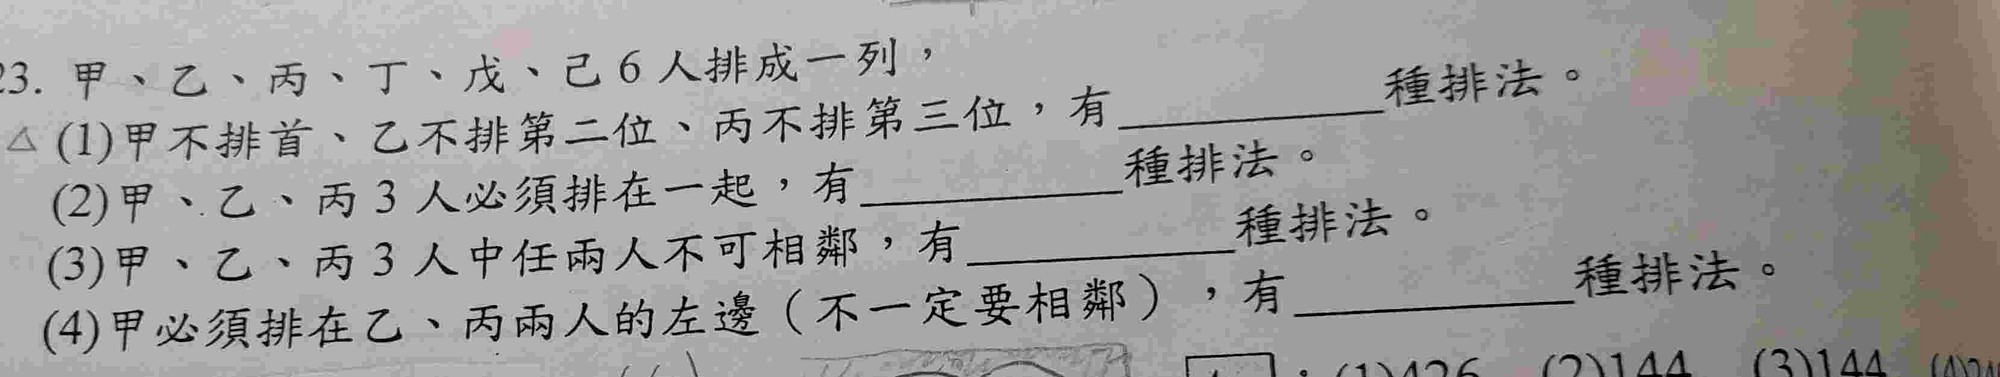 23. 甲、乙、丙、丁、戊、己 6 人排成一列，
△ (1)甲不排首、乙不排第二位、丙不排第三位，有__________種排法。
(2)甲、乙、丙 3 人必須排在一起，有__________種排法。
(3)甲、乙、丙 3 人中任兩人不可相鄰，有__________種排法。
(4)甲必須排在乙、丙兩人的左邊（不一定要相鄰），有__________種排法。
：(1)426 (2)144 (3)144 (4)24